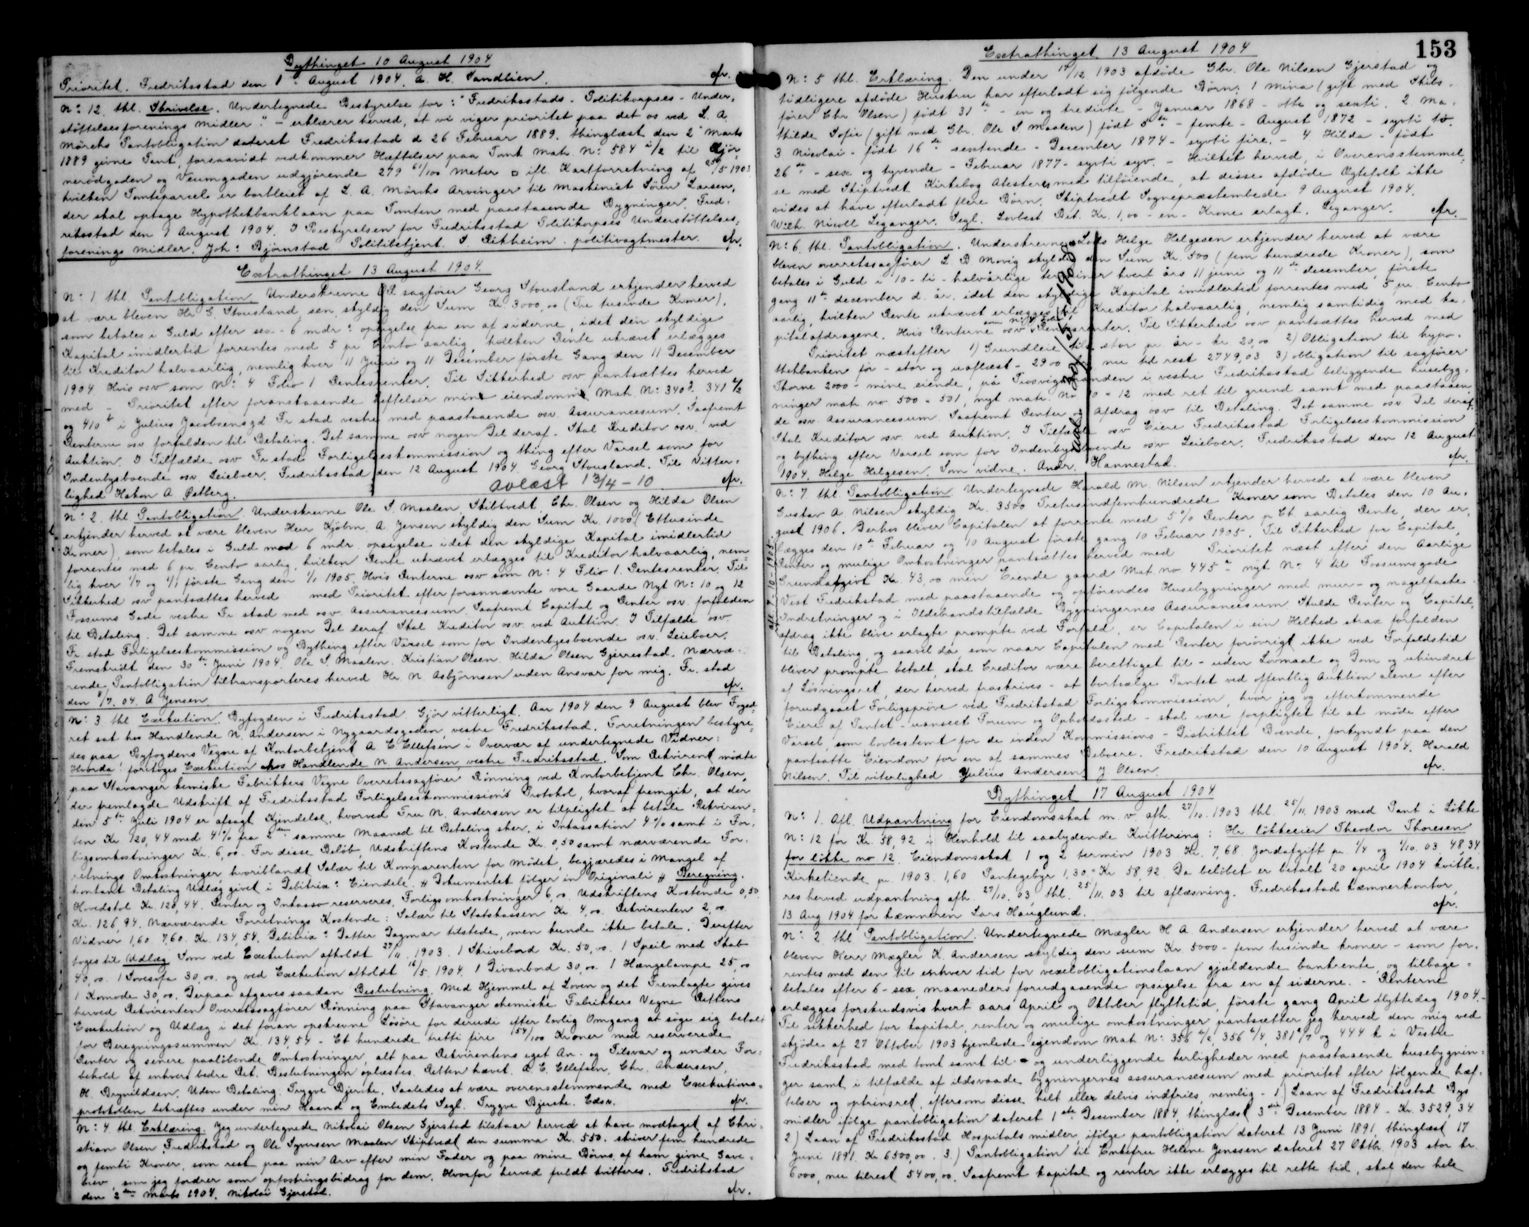 Bythinget 10 August 1904
Prioritet. Fredriksstad den 1ste August 1904. A. H. Sandlien. afr.
N: 12. thl. Skrivelse. Undertegnede Bestyrelse for: "Fredriksstads Politikorpses Under,
støttelsesforenings Midler" - erklærer herved, at vi viger prioritet paa det os ved L. A.
Mørchs Pantobligation dateret Fredriksstad d 26 Februar 1889, thinglæst den 2 Marts
1889 givne Pant, forsaavidt vedkommer Hæftelser paa Tomt Mats N: 584 a/2 til Gjør
nerødgaden og Veumgaden udgjørende 279 Meter □ ifl. Kartforretning af /5 1903
hvilken Tomteparcel er bortleiet af L. A. Mørchs Arvinger til Maskinist Søren Larsen,
der skal optage Hypothekbanklaan paa Tomten med paastaaende Bygninger. Fred-
riksstad den 9 August 1904. I Bestyrelsen for Fredriksstads Politikorpses Understøttelses,
forenings midler. Joh: Bjørnstad Politibetjent. politivagtmester. afr.
Extrathinget 13 August 1904.
N: 1 thl. Pantobligation. Underskrevne O.R. sagfører Georg Stousland erkjender herved
at være bleven Hr G Stousland, sen. skyldig den Sum Kr. 3000,00 (Tre tusinde Kroner),
som betales i Guld efter sex - 6 mdrs opsigelse fra en af siderne, idet den skyldige
Kapital imidlertid forrentes med 5 pr. Cento aarlig hvilken Rente utrævet erlægges
til Kreditor halvaarlig, nemlig hver 11 Juni og 11 December første Gang den 11 December
1904 Hvis osv som N: 4 Folio 1 Rentesrenter. Til Sikkerhed osv pantsættes herved
med - Prioritet efter foranstaaende Hæftelser mine eiendomme Mat. N: 340a. 341
og 410 b i Julius Jacobsensgd Fr stad vestre med paastaaende osv Assurancesum. Saafremt
Renterne osv forfalden til Betaling. Det samme osv nogen Del deraf. Skal Kreditor osv. ved
Auktion. I Tilfælde osv Fr stads Forligelseskommission og thing efter Varsel som for
Indenbysboende osv Leieboer. Fredriksstad den 12 August 1904 Georg Stousland. Til Vitter-
lighed Hakon A Østberg. avlæst 13/4 - 10 afr.
N: 2. thl Pantobligation. Underskrevne Ole S. Maalen, Skiltvedt, Chr. Olsen og Hilda Olsen
erkjender herved at være bleven Herr Kjøbm A Jensen skyldig den Sum Kr 1000 (Ettusinde
Kroner), som betales i Guld med 6 mdr opsigelse idet den skyldige Kapital imidlertid
forrentes med 6 pr Cento aarlig, hvilken Rente utrævet erlægges til Kreditor halvaarlig, nem-
lig hver 1/7 og 1/1 første Gang den 1/1 1905. Hvis Renterne osv som N: 4 Folio 1. Rentesrenter. Til
Sikkerhed osv pantsættes herved med Prioritet efter forannævnte vore Gaarde Nyt N: 10 og 12
Fossums Gade vestre Fr stad med osv Assurancesum. Saafremt Capital og Renter osv. forfalden
til Betaling. Det samme osv nogen Del deraf. Skal Kreditor osv ved Auktion. I Tilfælde osv
Fr. stad Forligelseskommission og Bything efter Varsel som for Indenbysboende osv. Leieboer.
den 30te Juni 1904. Ole S Maalen. Kristian Olsen. Hilda Olsen Gjerrestad. Nærvæ-
rende Pantobligation tiltransporteres herved Hr N. Asbjørnsen uden Ansvar for mig. Fr. stad
den 8/7. 04. A Jensen afr.
N: 3 thl Execution. Byfogden i Fredriksstad Gjør vitterligt. Aar 1904 den 9 August blev Foged-
ret sat hos Handlende N Andersen i Nygaardsgaden, vestre Fredriksstad. Forretningen bestyre-
des paa Byfogdens Vegne af Kontorbetjent A E Ellefsen i Overvær af undertegnede Vidner:
Hvorda! foretoges Execution hos Handlende N Andersen vestre Fredriksstad. Som Rekvirent mødte
paa Stavanger kemiske Fabrikkers Vegne Overretssagfører Rønning ved Kontorbetjent Chr. Olsen,
der fremlagde Udskrift af Fredriksstad Forligelseskommissions Protokol, hvoraf fremgik, at der
den 5te Juli 1904 er afsagt Kjendelse, hvorved Fru N. Andersen er tilpligtet at betale Rekviren-
ten Kr 120,44 med 4% fra samme Maaned til Betaling sker, i Inkassation 4% samt i For-
ligsomkostninger Kr. 6,00. For disse Beløb Udskriftens Kostende Kr 0,50 samt nærværende For-
retnings Omkostninger hvoriblandt Salær til Komparenten for Mødet, begjæredes i Mangel af
kontant Betaling Udlæg givet i Debitrix's Eiendele. # Dokumentet følger in Originali # Beregning.
Hovedstol Kr. 120,44. Renter og Inkasso reserveres, Forligsomkostninger 6,00. Udskriftens Kostende 0,50
Kr. 126,94. Nærværende Forretnings Kostende: Salær til Statskassen Kr 4,00. Rekvirenten 2,00
Vidner 1,60. 7,60. Kr. 134,54. Debitrix's Datter Dagmar tilstede, men kunde ikke betale. Derefter
toges til Udlæg Som ved Execution afholdt /11 1903. 1 Skrivebord Kr. 50,00. 1 Speil med Skab
40,00. 1 Sovesofa 30,00. og ved Execution afholdt 16/5 1904. 1 Divanbord 30,00. 1 Hængelampe 25,00
1 Komode 30,00. Derpaa afgaves saadan Beslutning. Med Hjemmel af Loven og det Fremlagte gives
herved Rekvirenten Overretssagfører Rønning paa Stavanger chemiske Fabrikkers Vegne Rettens
Execution og Udlæg i det foran opskrevne Løsøre for derudi efter lovlig Omgang at søge sig betalt
for Beregningssummen Kr. 134,54 - Et hundrede tretti fire 54/100 Kroner med reserverede
Renter og senere paaløbende Omkostninger, alt paa Rekvirentens eget An- og Tilsvar og under For-
behold af enhvers bedre Ret. Beslutningen oplæstes. Retten hævet. A. E. Ellefsen. Chr. Andersen.
H. Brynildsen. Uden Betaling Trygve Bjercke. Saaledes at være overensstemmende med Executions-
protokollen bekræftes under min Haand og Embedets Segl. Trygve Bjercke. Edsv. afr.
N: 4 thl. Erklæring. Jeg undertegnede Nikolai Olsen Gjerstad tilstaar herved at have modtaget af Chri-
stian Olsen Fredriksstad og Ole Syversen Maalen Skiptvedt den summa Kr. 550. skriver fem hundrede
og femti Kroner, som rest paa min Arv efter min Fader og paa mine Børns af ham givne Gave-
brev, som jeg fordrer som opfostringsbidrag for dem. Hvorfor herved fuldt kvitteres. Fredriksstad
den 2den Marts 1904. Nikolai Gjerstad. afr.
153
Extrathinget 13 August 1904
N: 5 thl. Erklæring. Den under 14/12 1903 afdøde Gbr. Ole Nilsen Gjerstad og
tidligere afdøde Hustru har efterladt sig følgende Børn: 1 Mina (gift med Skibs-
fører Chr Olsen) født 31te - en og tredivte - Januar 1868 - otte og sexti. 2 Ma-
thilde Sofie (gift med Gbr. Ole S Maalen) født 5te - femte - August 1872 - sytti to.
3 Nicolai - født 16de sextende - December 1874 - sytti fire, - 4 Hilda - født
26de - sex og tyvende - Februar 1877 - sytti syv. - Hvilket herved, i Overensstemmel-
se med Skiptvedt Kirkebog Atesteres med tilføiende, at disse afdøde Ægtefolk ikke
vides at have efterladt flere Børn. Skiptvedt Sogneprestembede 9 August 1904.
Wilh. Nicoll Leganger. Segl. Lovbest Bet. Kr. 1,00 - en - Krone erlagt. Leganger. afr.
N: 6. thl. Pantobligation. Underskrevne Lods Helge Helgesen erkjender herved at være
bleven overretssagfører L B Morig skyldig den Sum Kr 500 (fem hundrede Kroner), som
betales i Guld i 10 - ti - halvårlige terminer hvert års 11 juni og 11te desember, første
gang 11te desember d. år. idet den skyldige Kapital imidlertid forrentes med 5 pr. Cento
aarlig, hvilken Rente utrævet erlægges til Kreditor halvaarlig, nemlig samtidig med ka-
pitalafdragene. Hvis Renterne osv Rentesrenter. Til Sikkerhed osv pantsættes herved med
Prioritet næstefter 1) Grundleie til stor pr. år - kr 20,00 2) Obligation til hypo-
thekbanken for - stor og uaflæst - 2900 nu til rest 2749,03 3) obligation til sagfører
Thorne 2000 - mine eiende, på i vestre Fredriksstad beliggende husebyg-
ninger mat. no 500 - 501, nyt matr. No 10 - 12 med ret til grund samt med paastaaen
de osv Assurancesum. Saafremt Renter og Afdrag osv til Betaling. Det samme osv Del deraf.
Skal Kreditor osv ved Auktion. I Tilfælde osv Eiere Fredriksstad Forligelseskommission
og bything efter Varsel som for Indenbysboende osv Leieboer. Fredriksstad den 12 August
1904. Helge Helgesen. Som vidne. Andr. Hannestad. afr.
N: 7 thl. Pantobligation Undertegnede Harald M. Nilsen erkjender herved at være bleven
Gustav A Nilsen skyldig Kr. 3500 Tretusindfemhundrede Kroner som Betales den 10 Au-
gust 1906. Derhos bliver Capitalen at forrente med 5% Renter pr Et aarlig Rente, der er-
lægges den 10de Februar og 10 August første gang 10 Februar 1905. Til Sikkerhed for Capital,
Renter og mulige Omkostninger pantsættes herved med Prioritet næst efter den Aarlige
Grundafgivt Kr. 43,00 min Eiende gaard Mat No 445b nyt No 4 til Fossumsgade
Vest Fredriksstad med paastaaende og opførendes Husebygninger med mur- og nagelfaste
Indretninger og i Ildebrandstilfælde Bygningernes Assurancesum. Skulde Renter og Capital-
afdrag ikke blive erlagte prompte ved Forfald, er Capitalen i sin Helhed strax forfalden
til Betaling og saavel da som naar Capitalen med Renter forøvrigt ikke ved Forfaldstid
bliver prompte betalt, skal Creditor være berettiget til - uden Lovmaal og Dom og uhindret
af Løsningsret, der herved fraskrives - at bortsælge Pantet ved offentlig Auktion alene efter
forudgaaet Forligsprøve ved Fredrikstad Forligskommission, hvor jeg og efterkommende
Eiere af Pantet - uanseet Forum og Opholdssted - skal være forpligtet til at møde efter
Varsel, som lovbestemt for de inden Kommissions-Distriktet Boende, forkyndt paa den
pantsatte Eiendom for en af sammes Beboere. Fredriksstad den 10 August 1904. Harald
Nilsen. Til vitterlighed Julius Andersen J Olsen. afr.
Bythinget 17 August 1904
N: 1. Afl. Udpantning for Eiendomsskat m. v. afh. 27/10. 1903 thl. 25/11. 1903 med Pant i Løkke
N: 12 for Kr. 58,92 i Henhold til saalydende Kvittering: Hr løkkeeier Theodor Thoresen
for løkke no 12. Eiendomsskat 1 og 2 termin 1903 Kr. 7,68 Jordafgift pr. 1/4 og 1/10. 03 48,34
Kirketiende pr 1903. 1,60 Pantegebyr 1,30 = Kr 58,92. Da beløbet er betalt 20 april 1904 kvitte-
res herved udpantning afh. 27/10. 03 thl. 25/11. 03 til aflæsning. Fredriksstad kæmnerkontor,
13 Aug 1904 for kæmneren Lars Hauglund. afr.
N: 2 thl Pantobligation. Undertegnede Mægler H A Andersen erkjender herved at være
bleven Herr Mægler K Andersen skyldig den sum Kr 5000 - fem tusinde kroner - som for-
rentes med den til enhver tid for vexelobligationslaan gjældende bankrente og tilbage-
betales efter 6 - sex maaneders forudgaaende opsigelse fra en af siderne. - Renterne
erlægges forskudsvis hvert aars April og Oktober flyttetid, første gang April flyttedag 1904. -
Til sikkerhed for kapital, renter og mulige omkostninger, pantsætter jeg herved den mig ved
skjøde af 27 Oktober 1903 hjemlede eiendom Mat N: 356 a/2, 356 b/7, 381 b/7 og 444 b i Vestre
Fredriksstad med tomt samt til- og underliggende herligheder med paastaaende husebygnin-
ger samt, i tilfælde af ildsvaade bygningernes assurancesum med prioritet efter følgende hæf-
telser og oprindret, eftersom disse helt eller delvis indfries, nemlig - 1) Laan af Fredriksstad Bys
midler ifølge pantobligation dateret 1ste December 1884, thinglæst 3die December 1884 - Kr. 3529,34
2) Laan af Fredriksstad Hospitals midler, ifølge pantobligation dateret 13 Juni 1891, thinglæst 17
Juni 1891 Kr 6500,00. 3.) Pantobligation til Enkefru Helene Jenssen dateret 27 Oktb. 1903 stor kr
6000, nu tilrest 5400,00. Saafremt kapital og renter ikke erlægges til rette tid, skal den hele